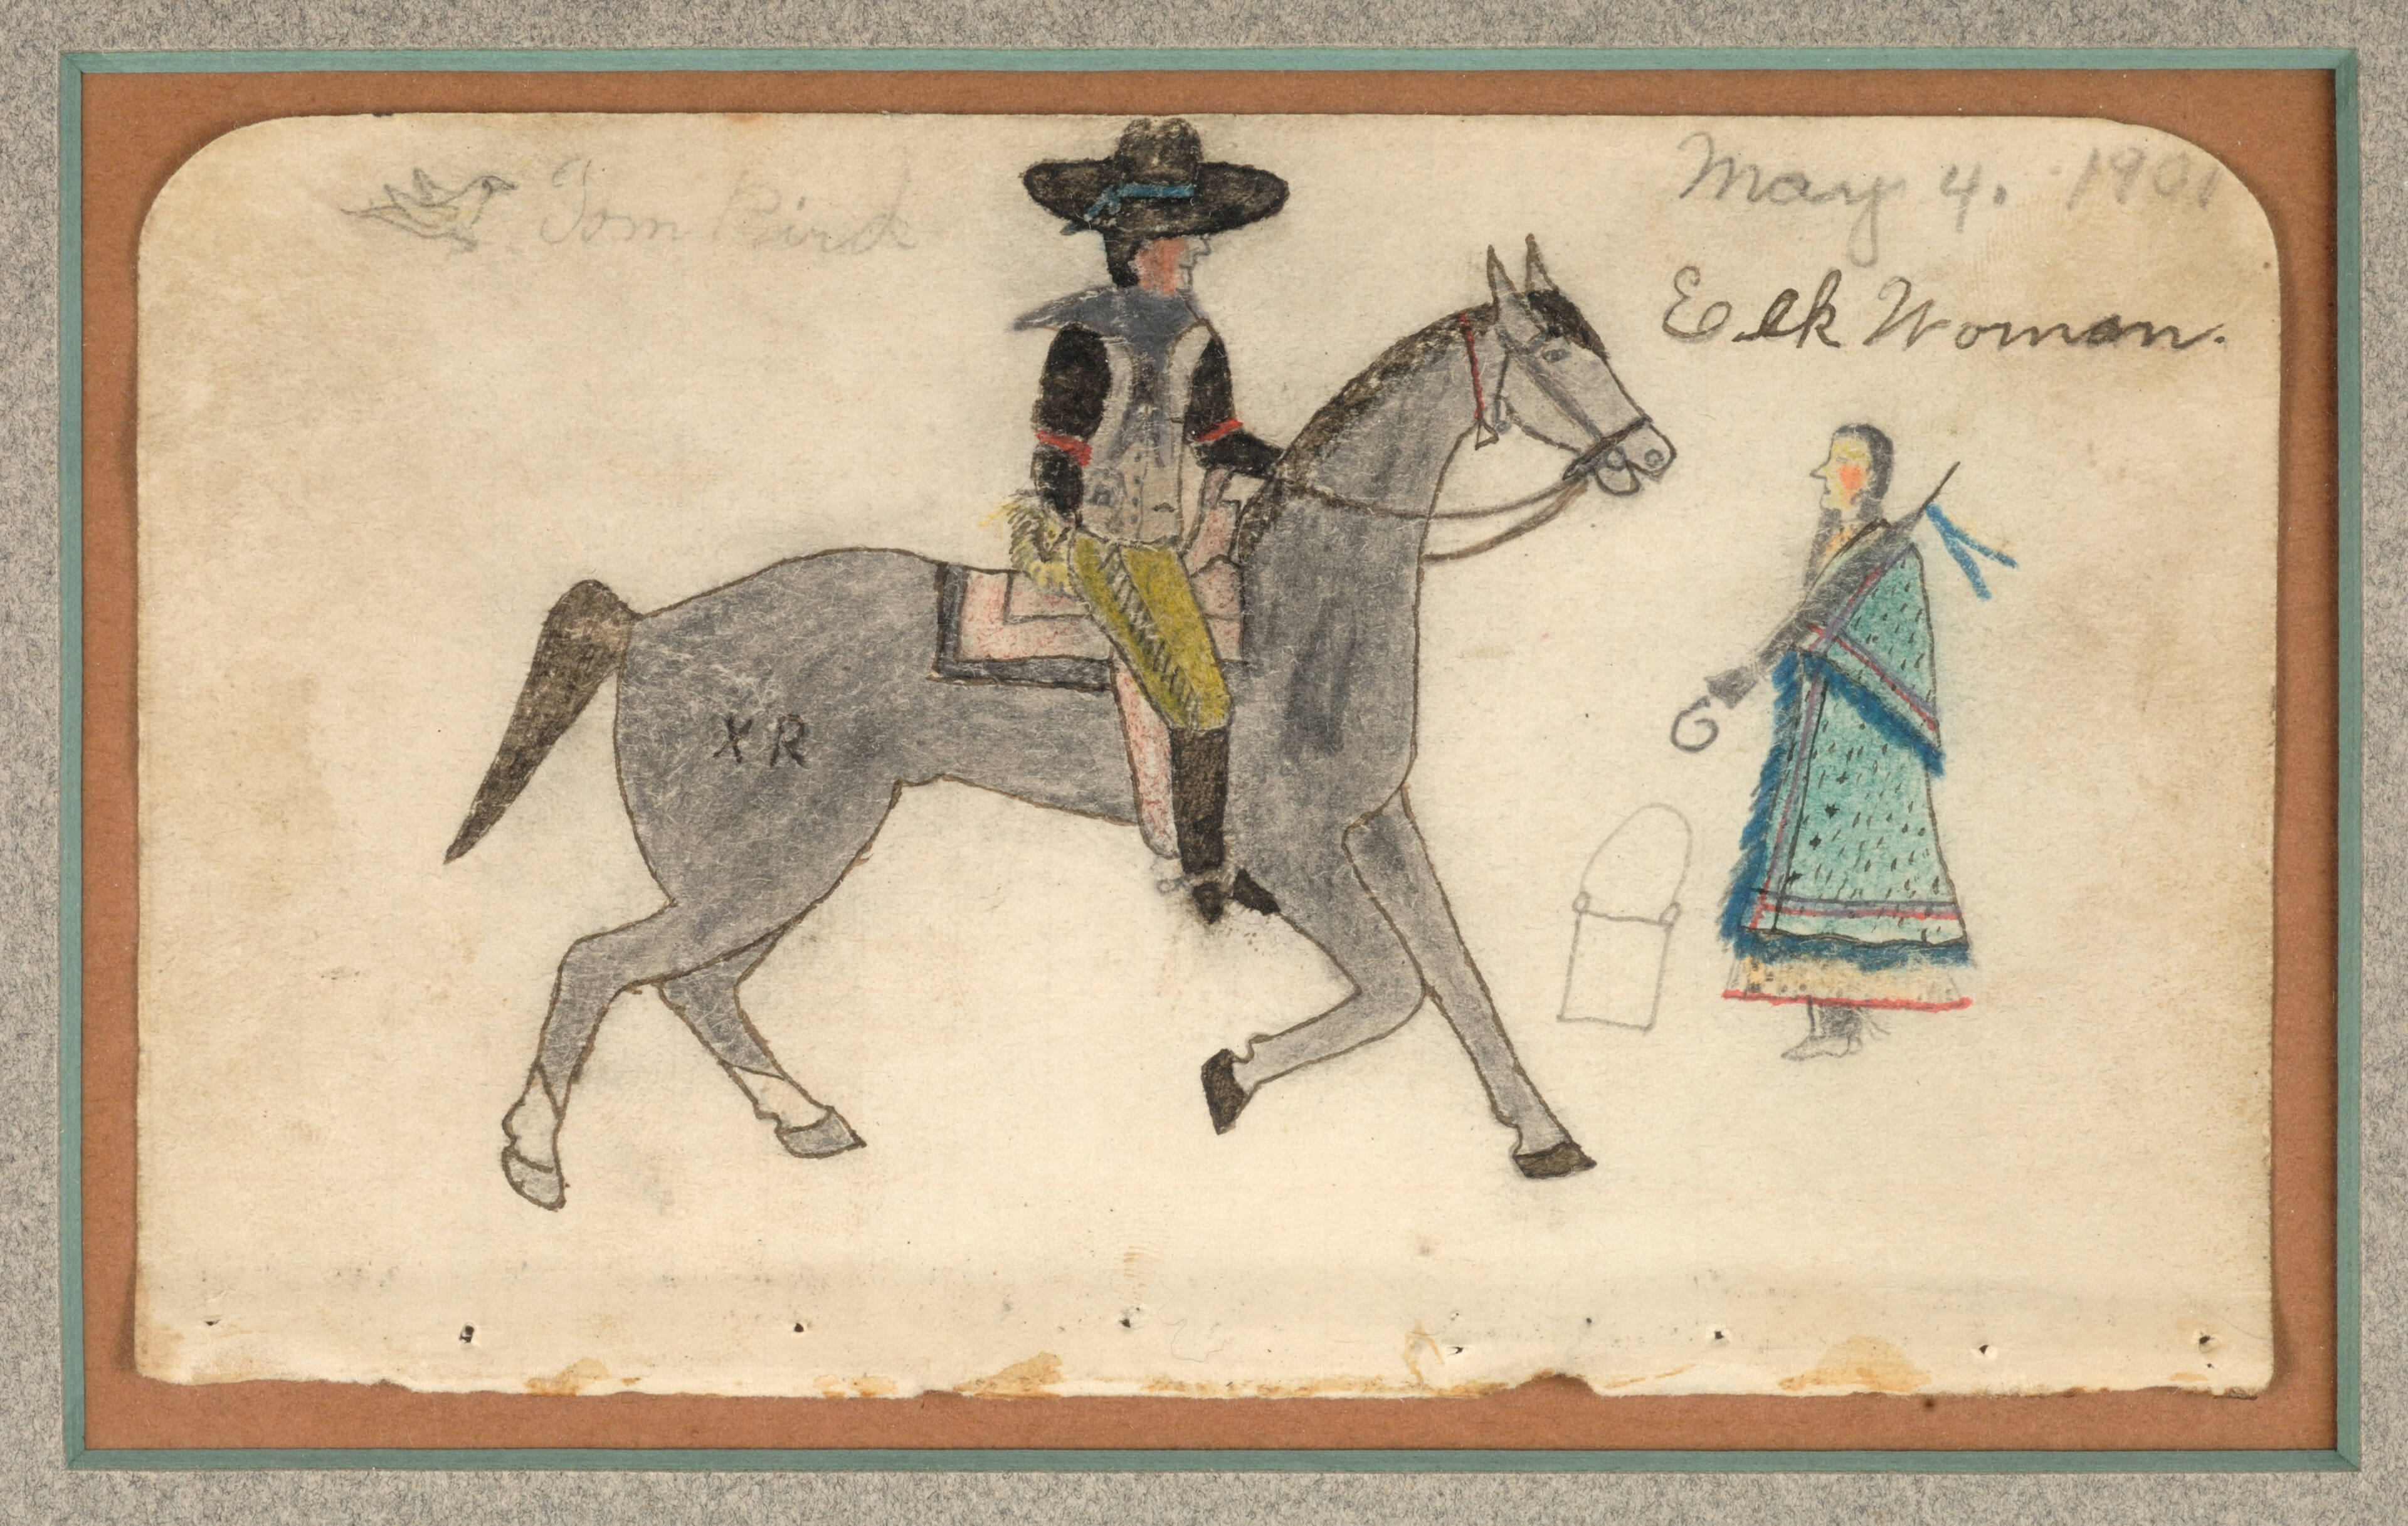 Tom Bird
May 4. 1901
Elk Woman.
XR